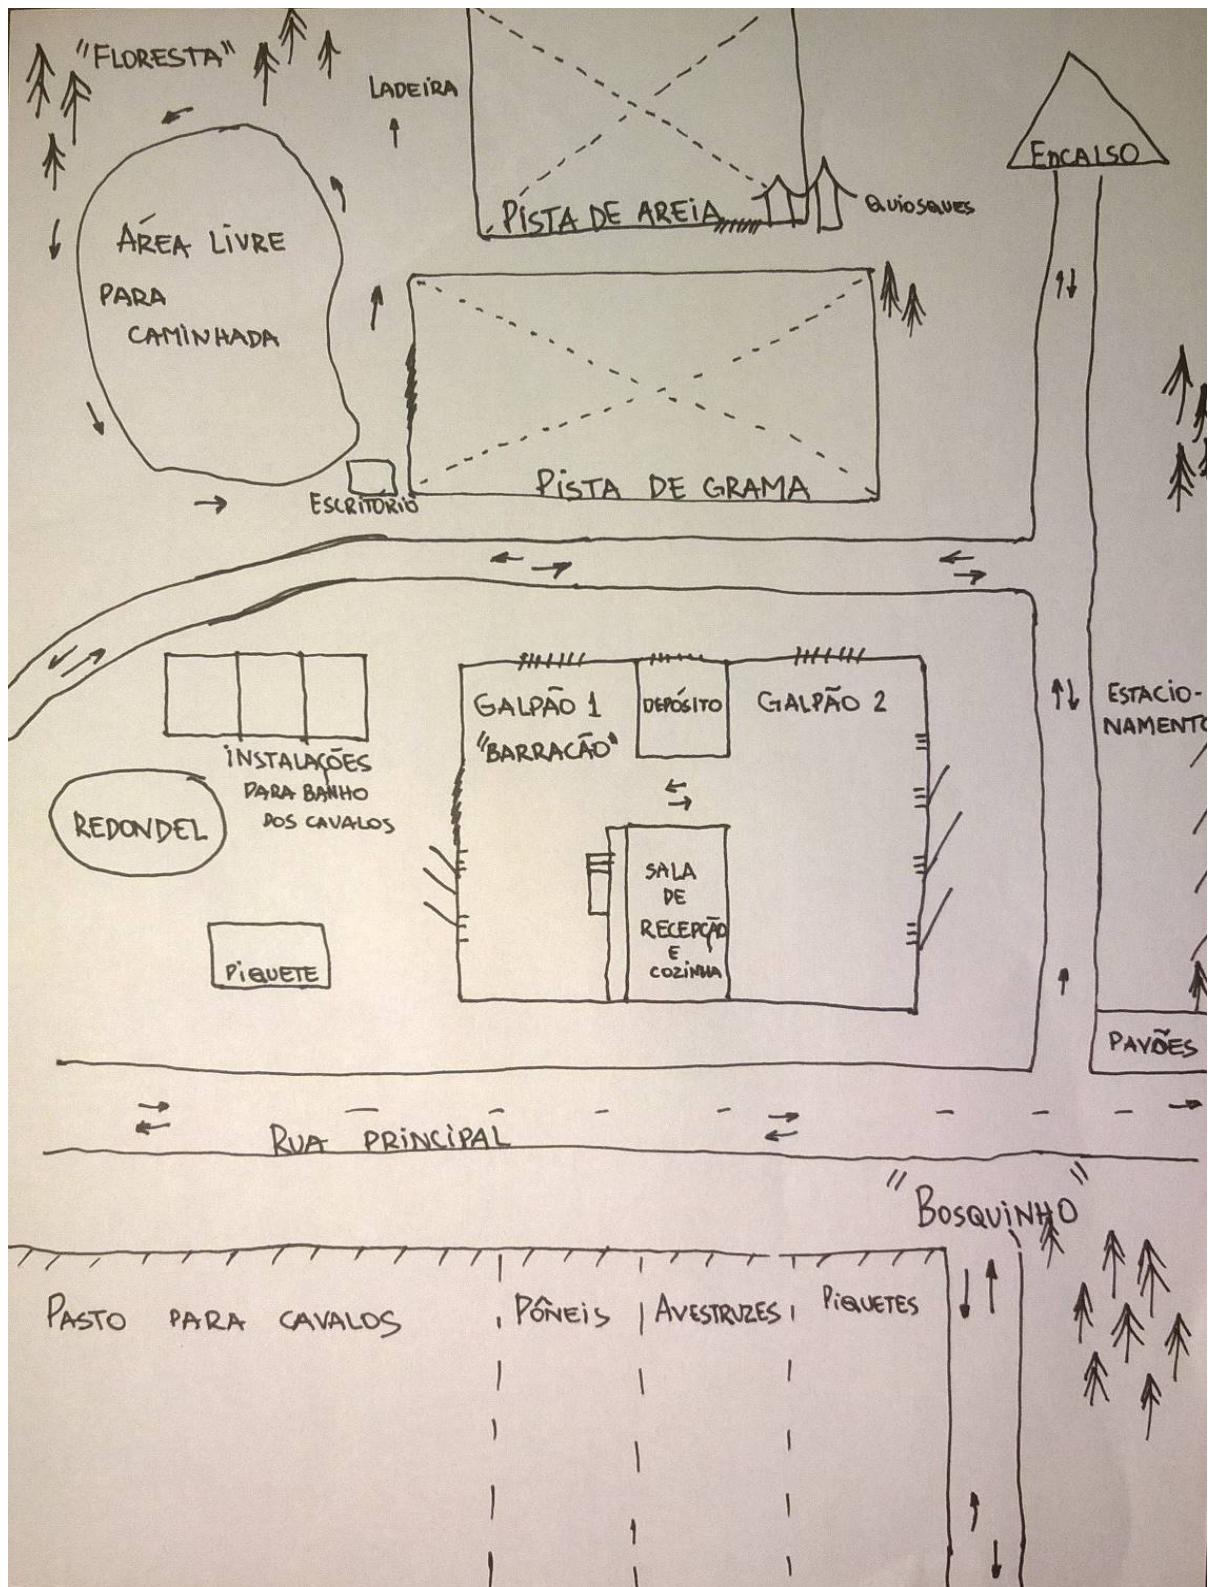 "FLORESTA"
LADEIRA
ENCALSO
PISTA DE AREIA
QUIOSQUES
ÁREA LIVRE
PARA
CAMINHADA
PISTA DE GRAMA
ESCRITÓRIO
GALPÃO 1
"BARRACÃO"
DEPÓSITO
GALPÃO 2
ESTACIO-
NAMENTO
INSTALAÇÕES
PARA BANHO
DOS CAVALOS
REDONDEL
SALA
DE
RECEPÇÃO
E
COZINHA
PIQUETE
PAVÕES
RUA PRINCIPAL
"BOSQUINHO"
PASTO PARA CAVALOS
PÔNEIS
AVESTRUZES
PIQUETES